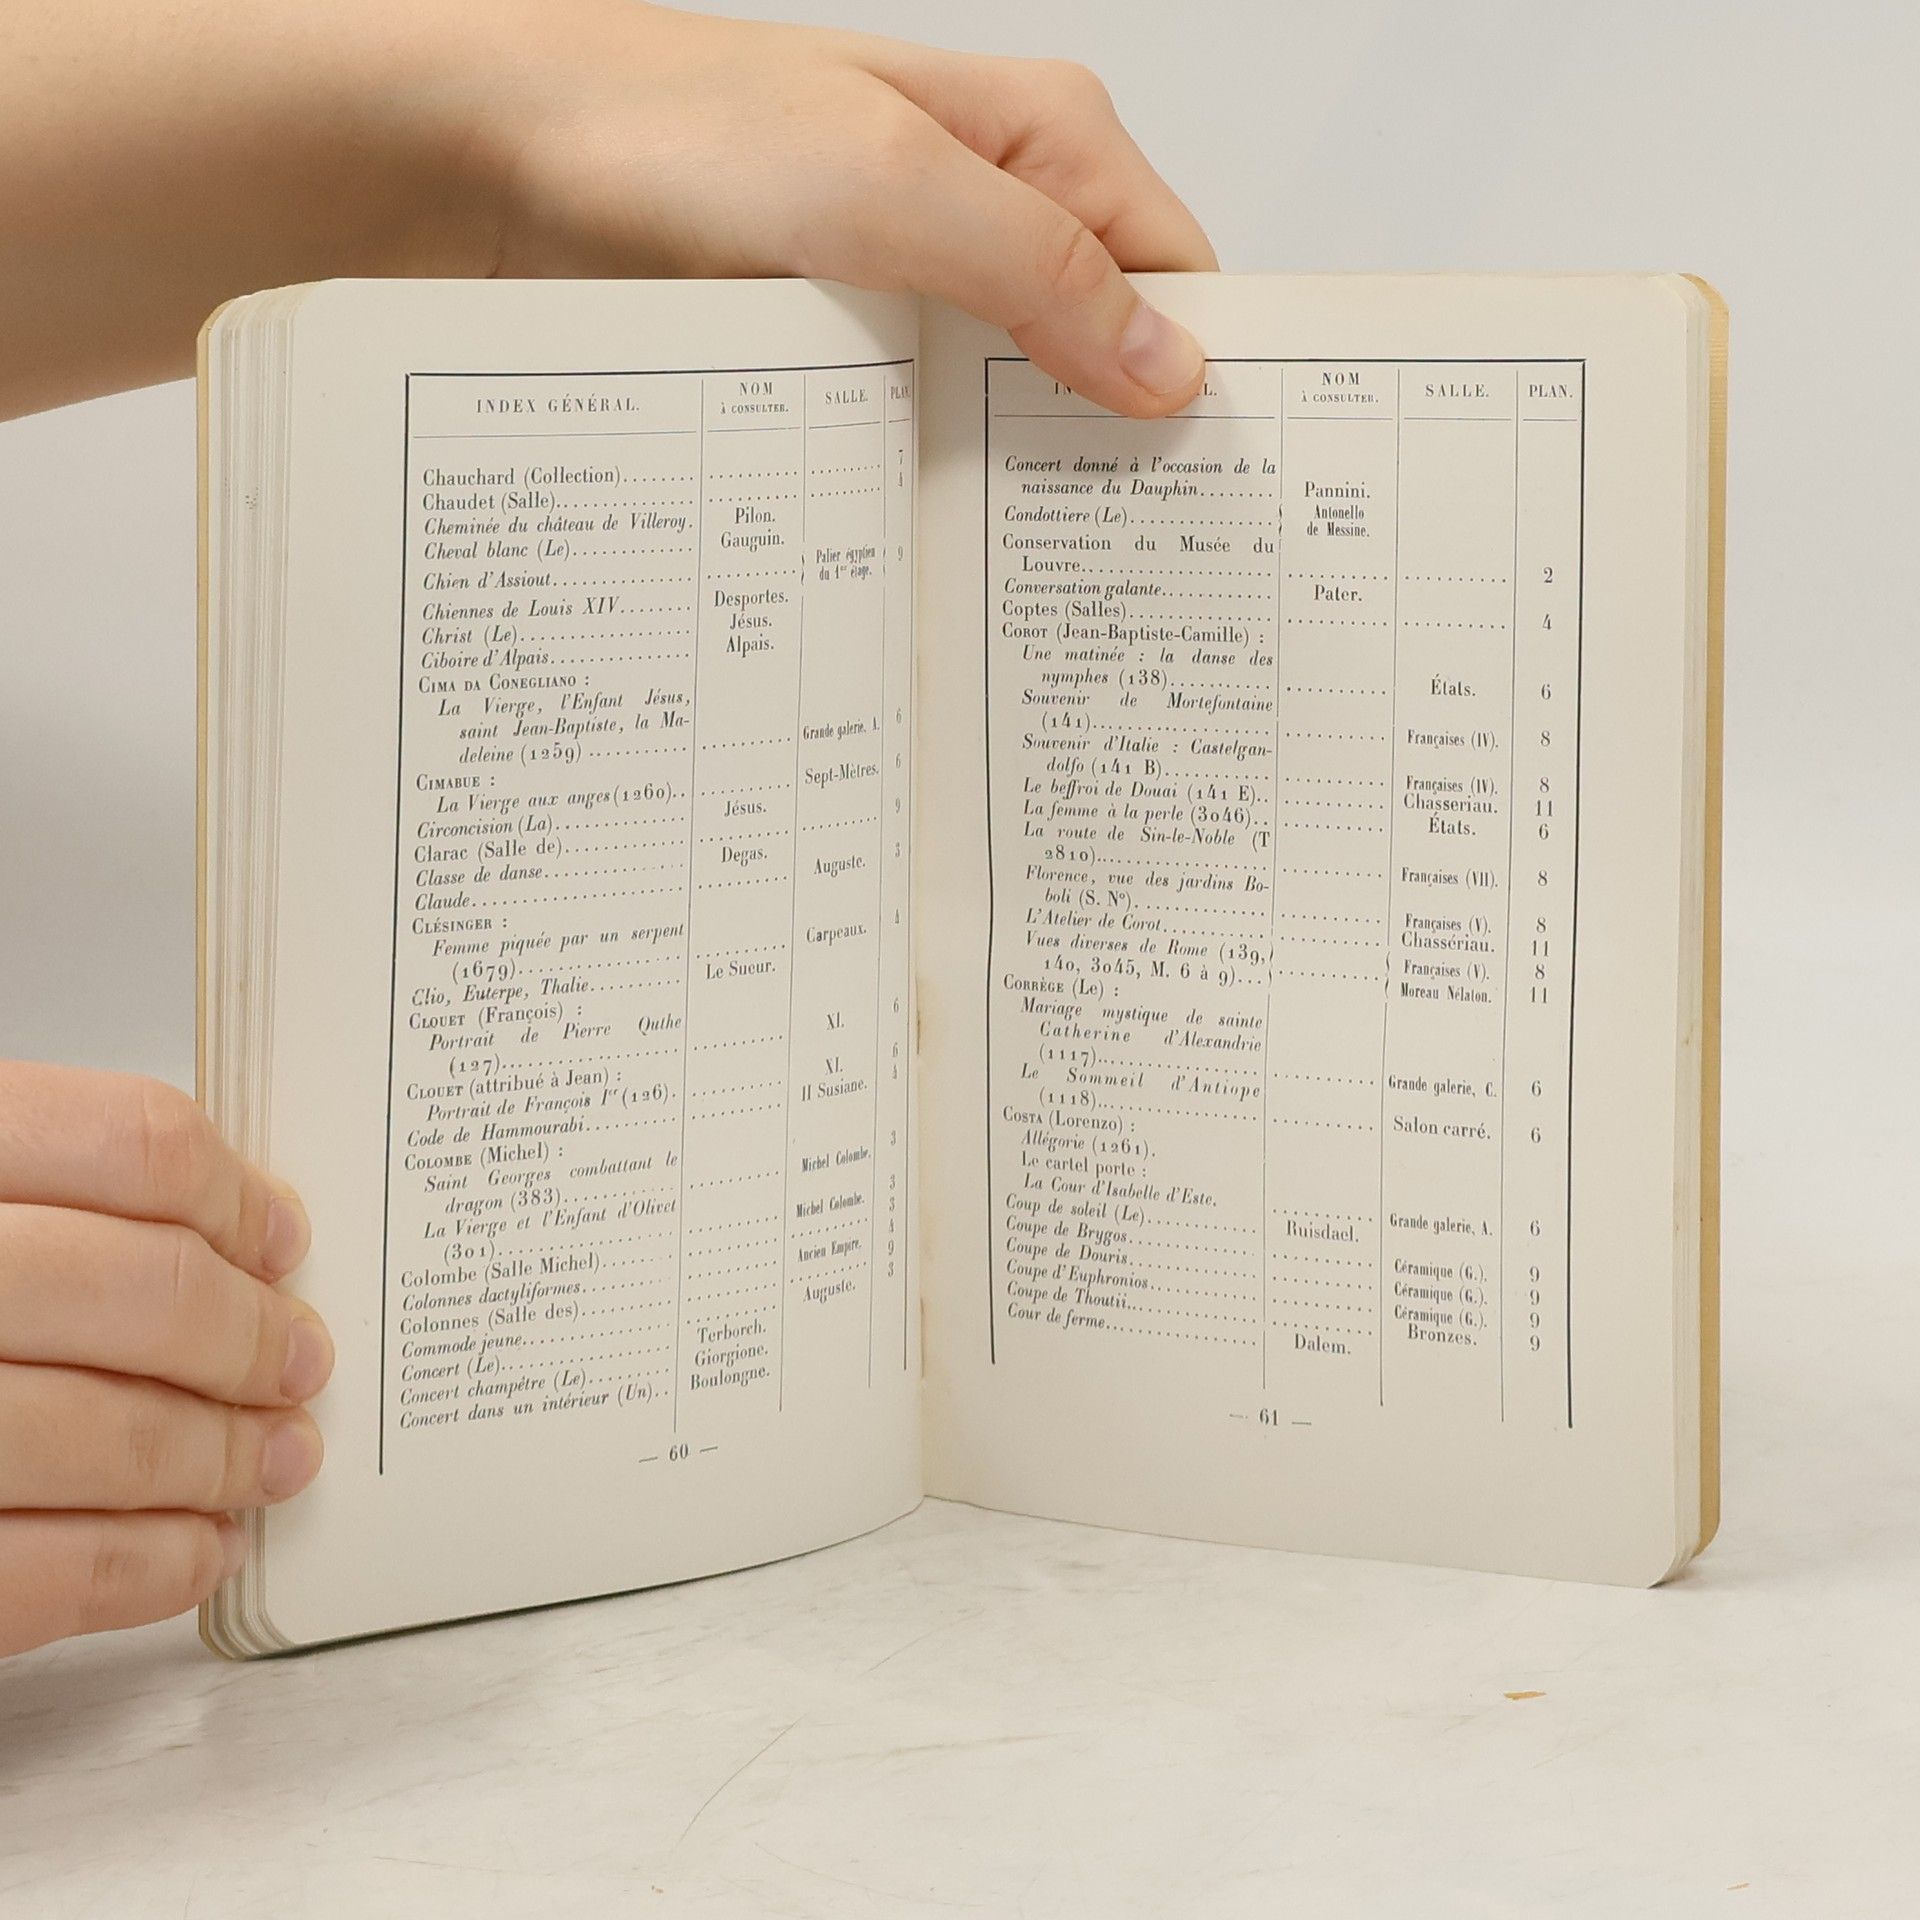 INDEX GÉNÉRAL. NOM À CONSULTER. SALLE. PLAN.
Chauchard (Collection)........ .......... .......... 7
Chaudet (Salle)............... .......... .......... 4
Cheminée du château de Villeroy. Pilon.
Cheval blanc (Le)............. Gauguin.
Chien d'Assiout............... .......... Palier égyptien du 1er étage. 9
Chiennes de Louis XIV........ Desportes.
Christ (Le)................... Jésus.
Ciboire d'Alpais............... Alpais.
CIMA DA CONEGLIANO :
La Vierge, l'Enfant Jésus,
saint Jean-Baptiste, la Ma-
deleine (1259) ........... .......... Grande galerie, A. 6
CIMABUE :
La Vierge aux anges (1260).. .......... Sept-Mètres. 6
Circoncision (La)............. Jésus.
Clarac (Salle de)............. .......... .......... 9
Classe de danse............... Degas.
Claude....................... .......... Auguste. 3
CLÉSINGER :
Femme piquée par un serpent
(1679).................. .......... Carpeaux. 4
Clio, Euterpe, Thalie.......... Le Sueur.
CLOUET (François) :
Portrait de Pierre Quthe
(127)................... .......... XI. 6
CLOUET (attribué à Jean) :
Portrait de François Ier (126). .......... XI. 6
Code de Hammourabi.......... .......... II Susiane. 4
COLOMBE (Michel) :
Saint Georges combattant le
dragon (383)............. .......... Michel Colombe. 3
La Vierge et l'Enfant d'Olivet
(301)................... .......... Michel Colombe. 3
Colombe (Salle Michel)........ .......... .......... 3
Colonnes dactyliformes......... .......... Ancien Empire. 4
Colonnes (Salle des).......... .......... .......... 9
Commode jeune............... .......... Auguste. 3
Concert (Le).................. Terborch.
Concert champêtre (Le)......... Giorgione.
Concert dans un intérieur (Un).. Boulongne.
— 60 —
NOM À CONSULTER. SALLE. PLAN.
Concert donné à l'occasion de la
naissance du Dauphin........ Pannini.
Condottiere (Le)............... Antonello de Messine.
Conservation du Musée du
Louvre.................... .......... .......... 2
Conversation galante............ Pater.
Coptes (Salles)................ .......... .......... 4
COROT (Jean-Baptiste-Camille) :
Une matinée : la danse des
nymphes (138)........... .......... États. 6
Souvenir de Mortefontaine
(141)................... .......... Françaises (IV). 8
Souvenir d'Italie : Castelgan-
dolfo (141 B)............ .......... Françaises (IV). 8
Le beffroi de Douai (141 E).. .......... Chasseriau. 11
La femme à la perle (3046).. .......... États. 6
La route de Sin-le-Noble (T
2810)................... .......... Françaises (VII). 8
Florence, vue des jardins Bo-
boli (S. N°).............. .......... Françaises (V). 8
L'Atelier de Corot.......... .......... Chassériau. 11
Vues diverses de Rome (139, Françaises (V). 8
140, 3045, M. 6 à 9)... .......... Moreau Nélaton. 11
CORRÈGE (Le) :
Mariage mystique de sainte
Catherine d'Alexandrie
(1117).................. .......... Grande galerie, C. 6
Le Sommeil d'Antiope
(1118).................. .......... Salon carré. 6
COSTA (Lorenzo) :
Allégorie (1261).
Le cartel porte :
La Cour d'Isabelle d'Este. .......... Grande galerie, A. 6
Coup de soleil (Le)............ Ruisdael.
Coupe de Brygos.............. .......... Céramique (G.). 9
Coupe de Douris.............. .......... Céramique (G.). 9
Coupe d'Euphronios............ .......... Céramique (G.). 9
Coupe de Thoutii.............. .......... Bronzes. 9
Cour de ferme................ Dalem.
— 61 —